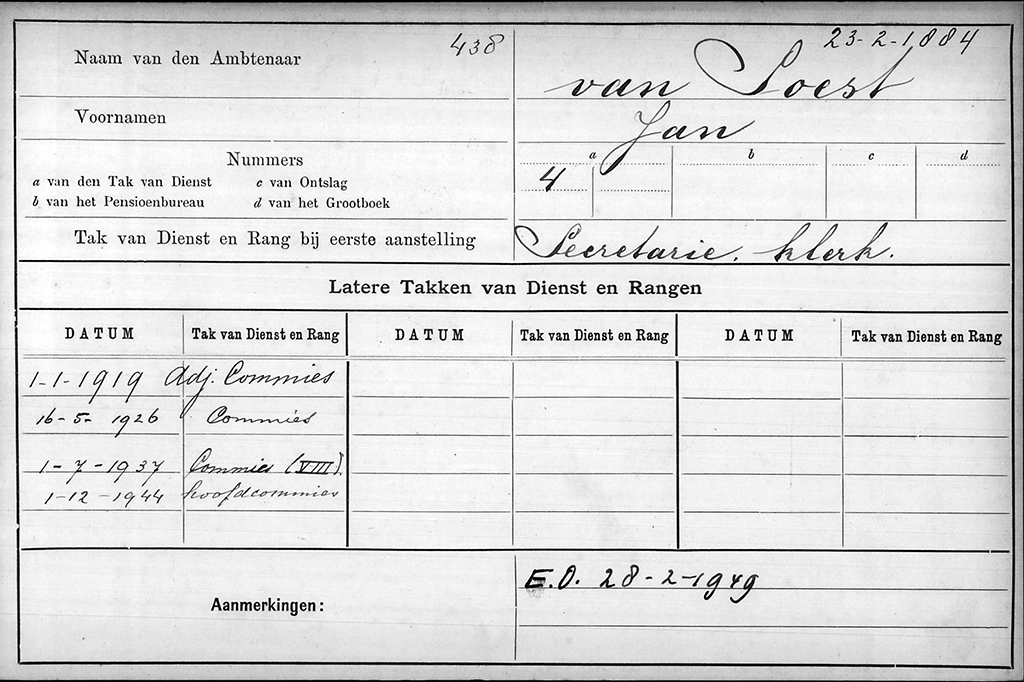 438
23-2-1884
Naam van den Ambtenaar
van Soest
Voornamen
Jan
Nummers
a b c d
a van den Tak van Dienst c van Ontslag
4
b van het Pensioenbureau d van het Grootboek
Tak van Dienst en Rang bij eerste aanstelling
Secretarie. klerk.
Latere Takken van Dienst en Rangen
DATUM Tak van Dienst en Rang DATUM Tak van Dienst en Rang DATUM Tak van Dienst en Rang
1-1-1919 Adj. Commies
16-5-1926 Commies
1-7-1937 Commies (VIII).
1-12-1944 hoofdcommies
Aanmerkingen:
E.O. 28-2-1949